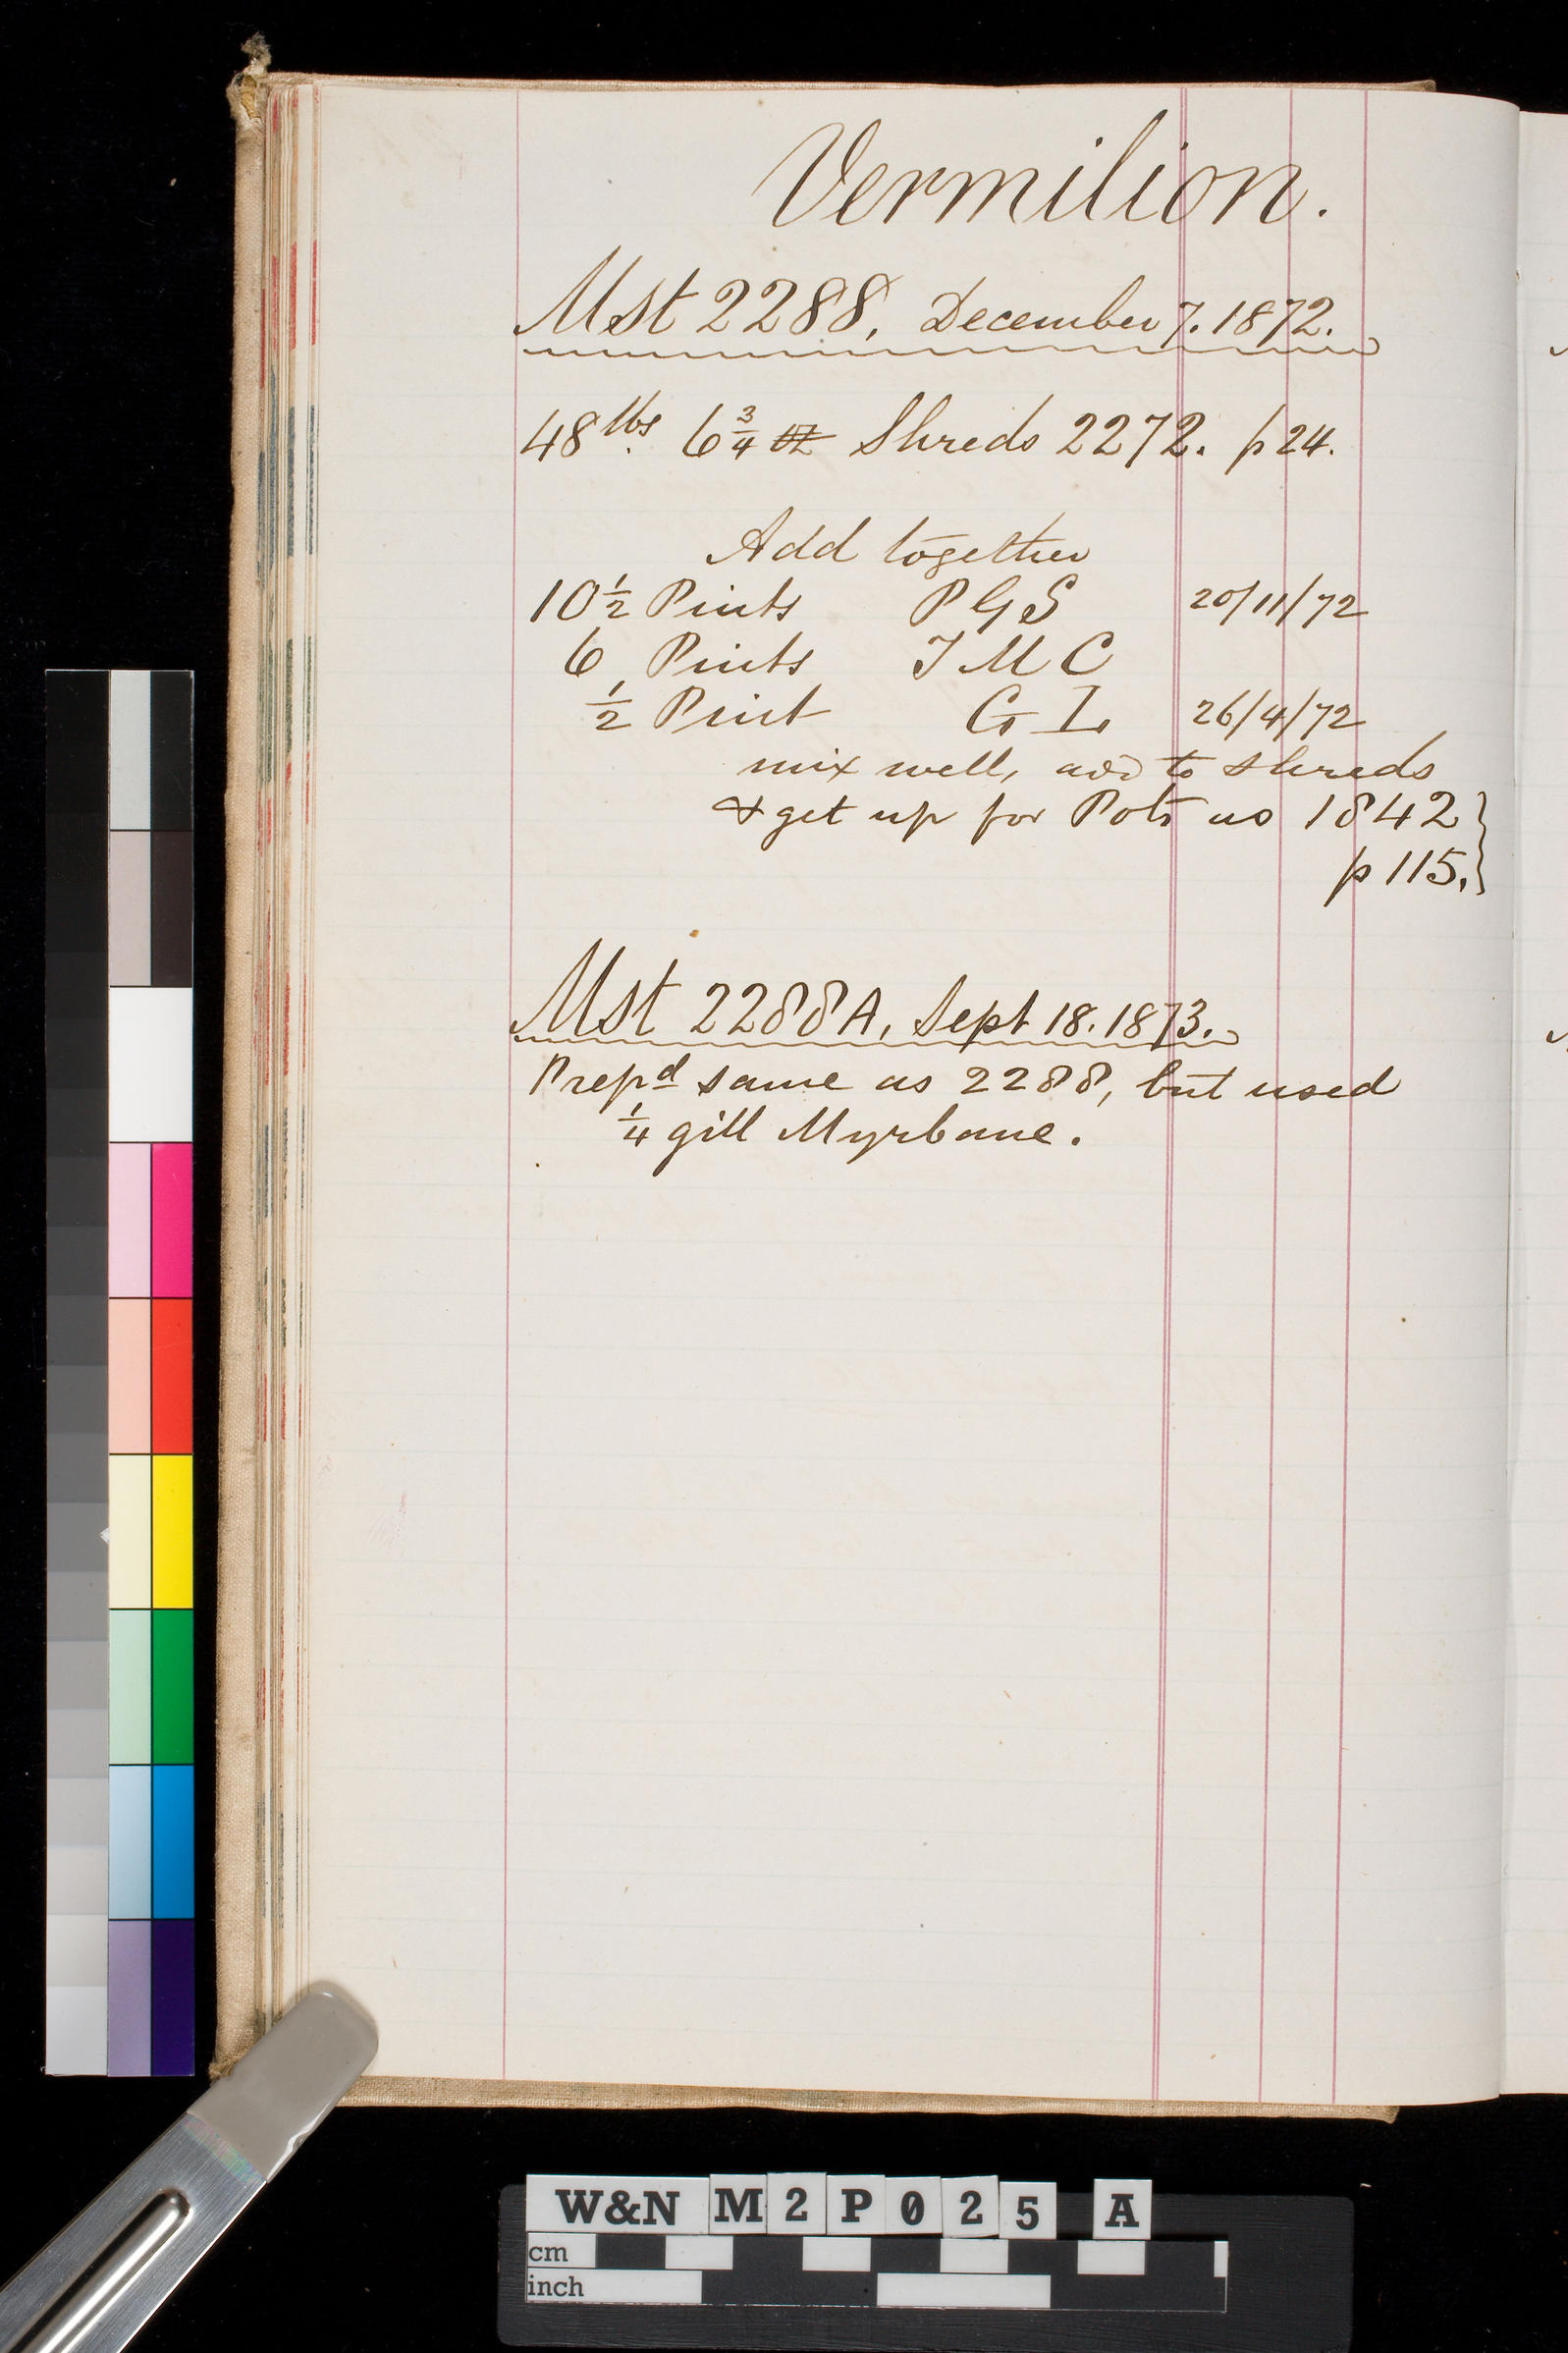 Vermilion.
Mst 2288, December 7. 1872.
48 lbs. 6 3/4 oz Shreds 2272. p 24.
Add together
10 1/2 Pints P G S 20/11/72
6 Pints T M C
1/2 Pint G L 26/4/72
mix well, add to shreds
& get up for Pots as 1842 }
p 115. }
Mst 2288A, Sept 18. 1873.
Prepd same as 2288, but used
1/4 gill Myrbane.
W&N M2P025 A
cm
inch